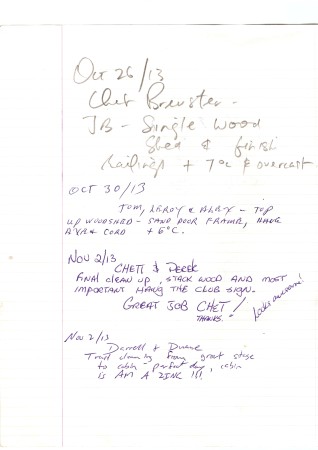 Oct 26/13
Chet Brewster -
JB - Single wood
Shed & finish
railings + 7°C & overcast.
OCT 30/13
TOM, LEROY & - TOP
UP WOODSHED - SAND DOOR FRAME, HANG
& CORD + 6°C.
NOV 2/13
CHETT & DEREK
FINAL CLEAN UP, STACK WOOD AND MOST
IMPORTANT HANG THE CLUB SIGN.
GREAT JOB CHET!
THANKS.
Looks awesome!
Nov 2/13
Darrell & Duane
Trail cleaning from great
to cabin - perfect day, cabin
is AM A ZING !!!